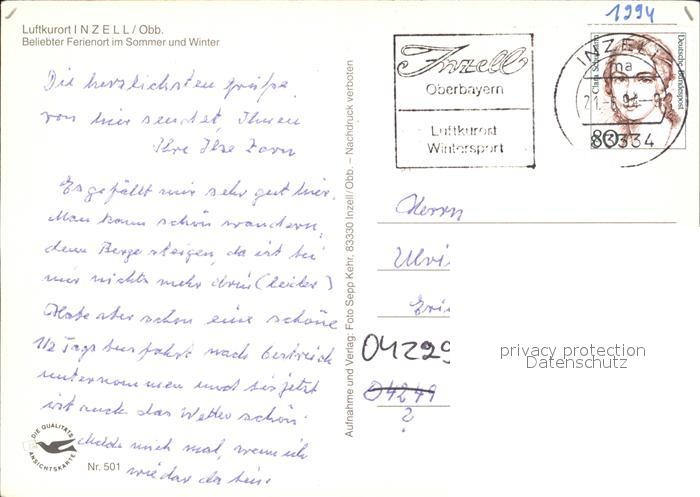 1994
Luftkurort INZELL/Obb.
Beliebter Ferienort im Sommer und Winter
Die herzlichsten Grüße
von hier sendet, Ihnen
Ihre Ilse Zorn
Es gefällt mir sehr gut hier.
Man kann schön wandern,
denn Berge steigen, da ist bei
mir nichts mehr drin (leider)
Habe aber schon eine schöne
1/2 Tags busfahrt nach Östreich
unternommen und bis jetzt
ist auch das Wetter schön
Melde mich mal, wenn ich
wieder da bin.
DIE QUALITÄTS
ANSICHTSKARTE
Nr. 501
Aufnahme und Verlag: Foto Sepp Kehr, 83330 Inzell/Obb. – Nachdruck verboten
Inzell
Oberbayern
Luftkurort
Wintersport
INZELL
ma
21.-6.94-
83334
Clara Schumann
Deutsche Bundespost
80
Herrn
Ulri
Eri
04229
04249
?
privacy protection
Datenschutz